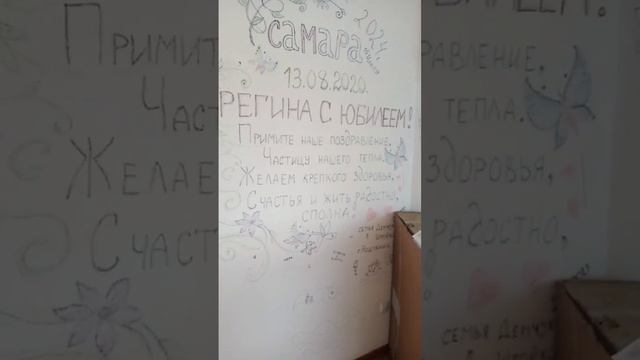 2024г.
САМАРА
13.08.2020.
РЕГИНА С ЮБИЛЕЕМ!
ПРИМИТЕ НАШЕ ПОЗДРАВЛЕНИЕ.
ЧАСТИЦУ НАШЕГО ТЕПЛА.
ЖЕЛАЕМ КРЕПКОГО ЗДОРОВЬЯ,
СЧАСТЬЯ И ЖИТЬ РАДОСТНО,
СПОЛНА.
СЕМЬЯ